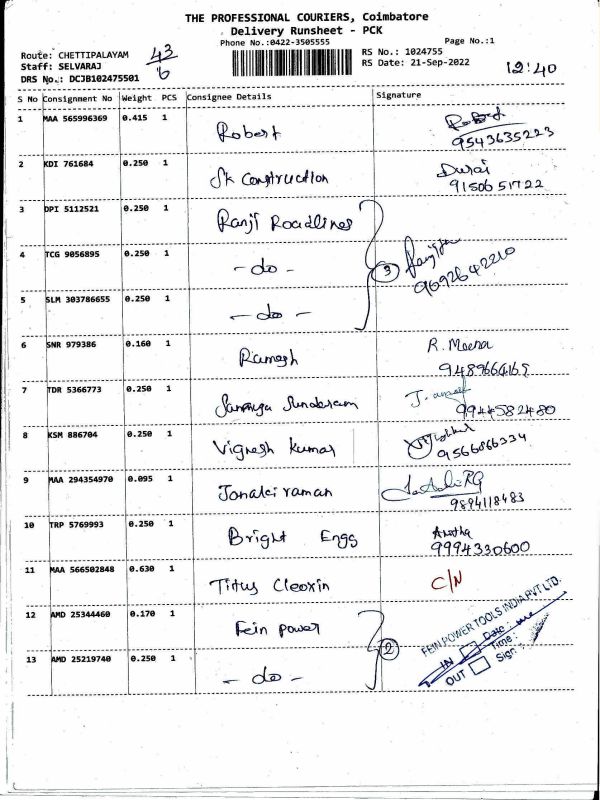 THE PROFESSIONAL COURIERS, Coimbatore
Delivery Runsheet - PCK
Phone No.:0422-3505555
Page No.:1
Route: CHETTIPALAYAM
Staff: SELVARAJ
DRS No.: DCJB102475501
43/6
RS No.: 1024755
RS Date: 21-Sep-2022
12:40
S No Consignment No Weight PCS Consignee Details Signature
1 MAA 565996369 0.415 1 Robert
9543635223
2 KDI 761684 0.250 1 SK Construction Durai
9150651722
3 DPI 5112521 0.250 1 Ranji Roadlines
4 TCG 9056895 0.250 1 - do - 3
9692642210
5 SLM 303786655 0.250 1 - do -
6 SNR 979386 0.160 1 Ramesh R. Meena
9489664169
7 TDR 5366773 0.250 1 Sunderam
9944582480
8 KSM 886704 0.250 1 Vignesh Kumar
9566866334
9 MAA 294354970 0.095 1 Janakiraman
9894118483
10 TRP 5769993 0.250 1 Bright Engg
9994330600
11 MAA 566502848 0.630 1 Titus Cleoxin C/N
12 AMD 25344460 0.170 1 Fein power
13 AMD 25219740 0.250 1 - do - 2
FEIN POWER TOOLS INDIA PVT LTD.
IN Date:
Time:
OUT Sign: